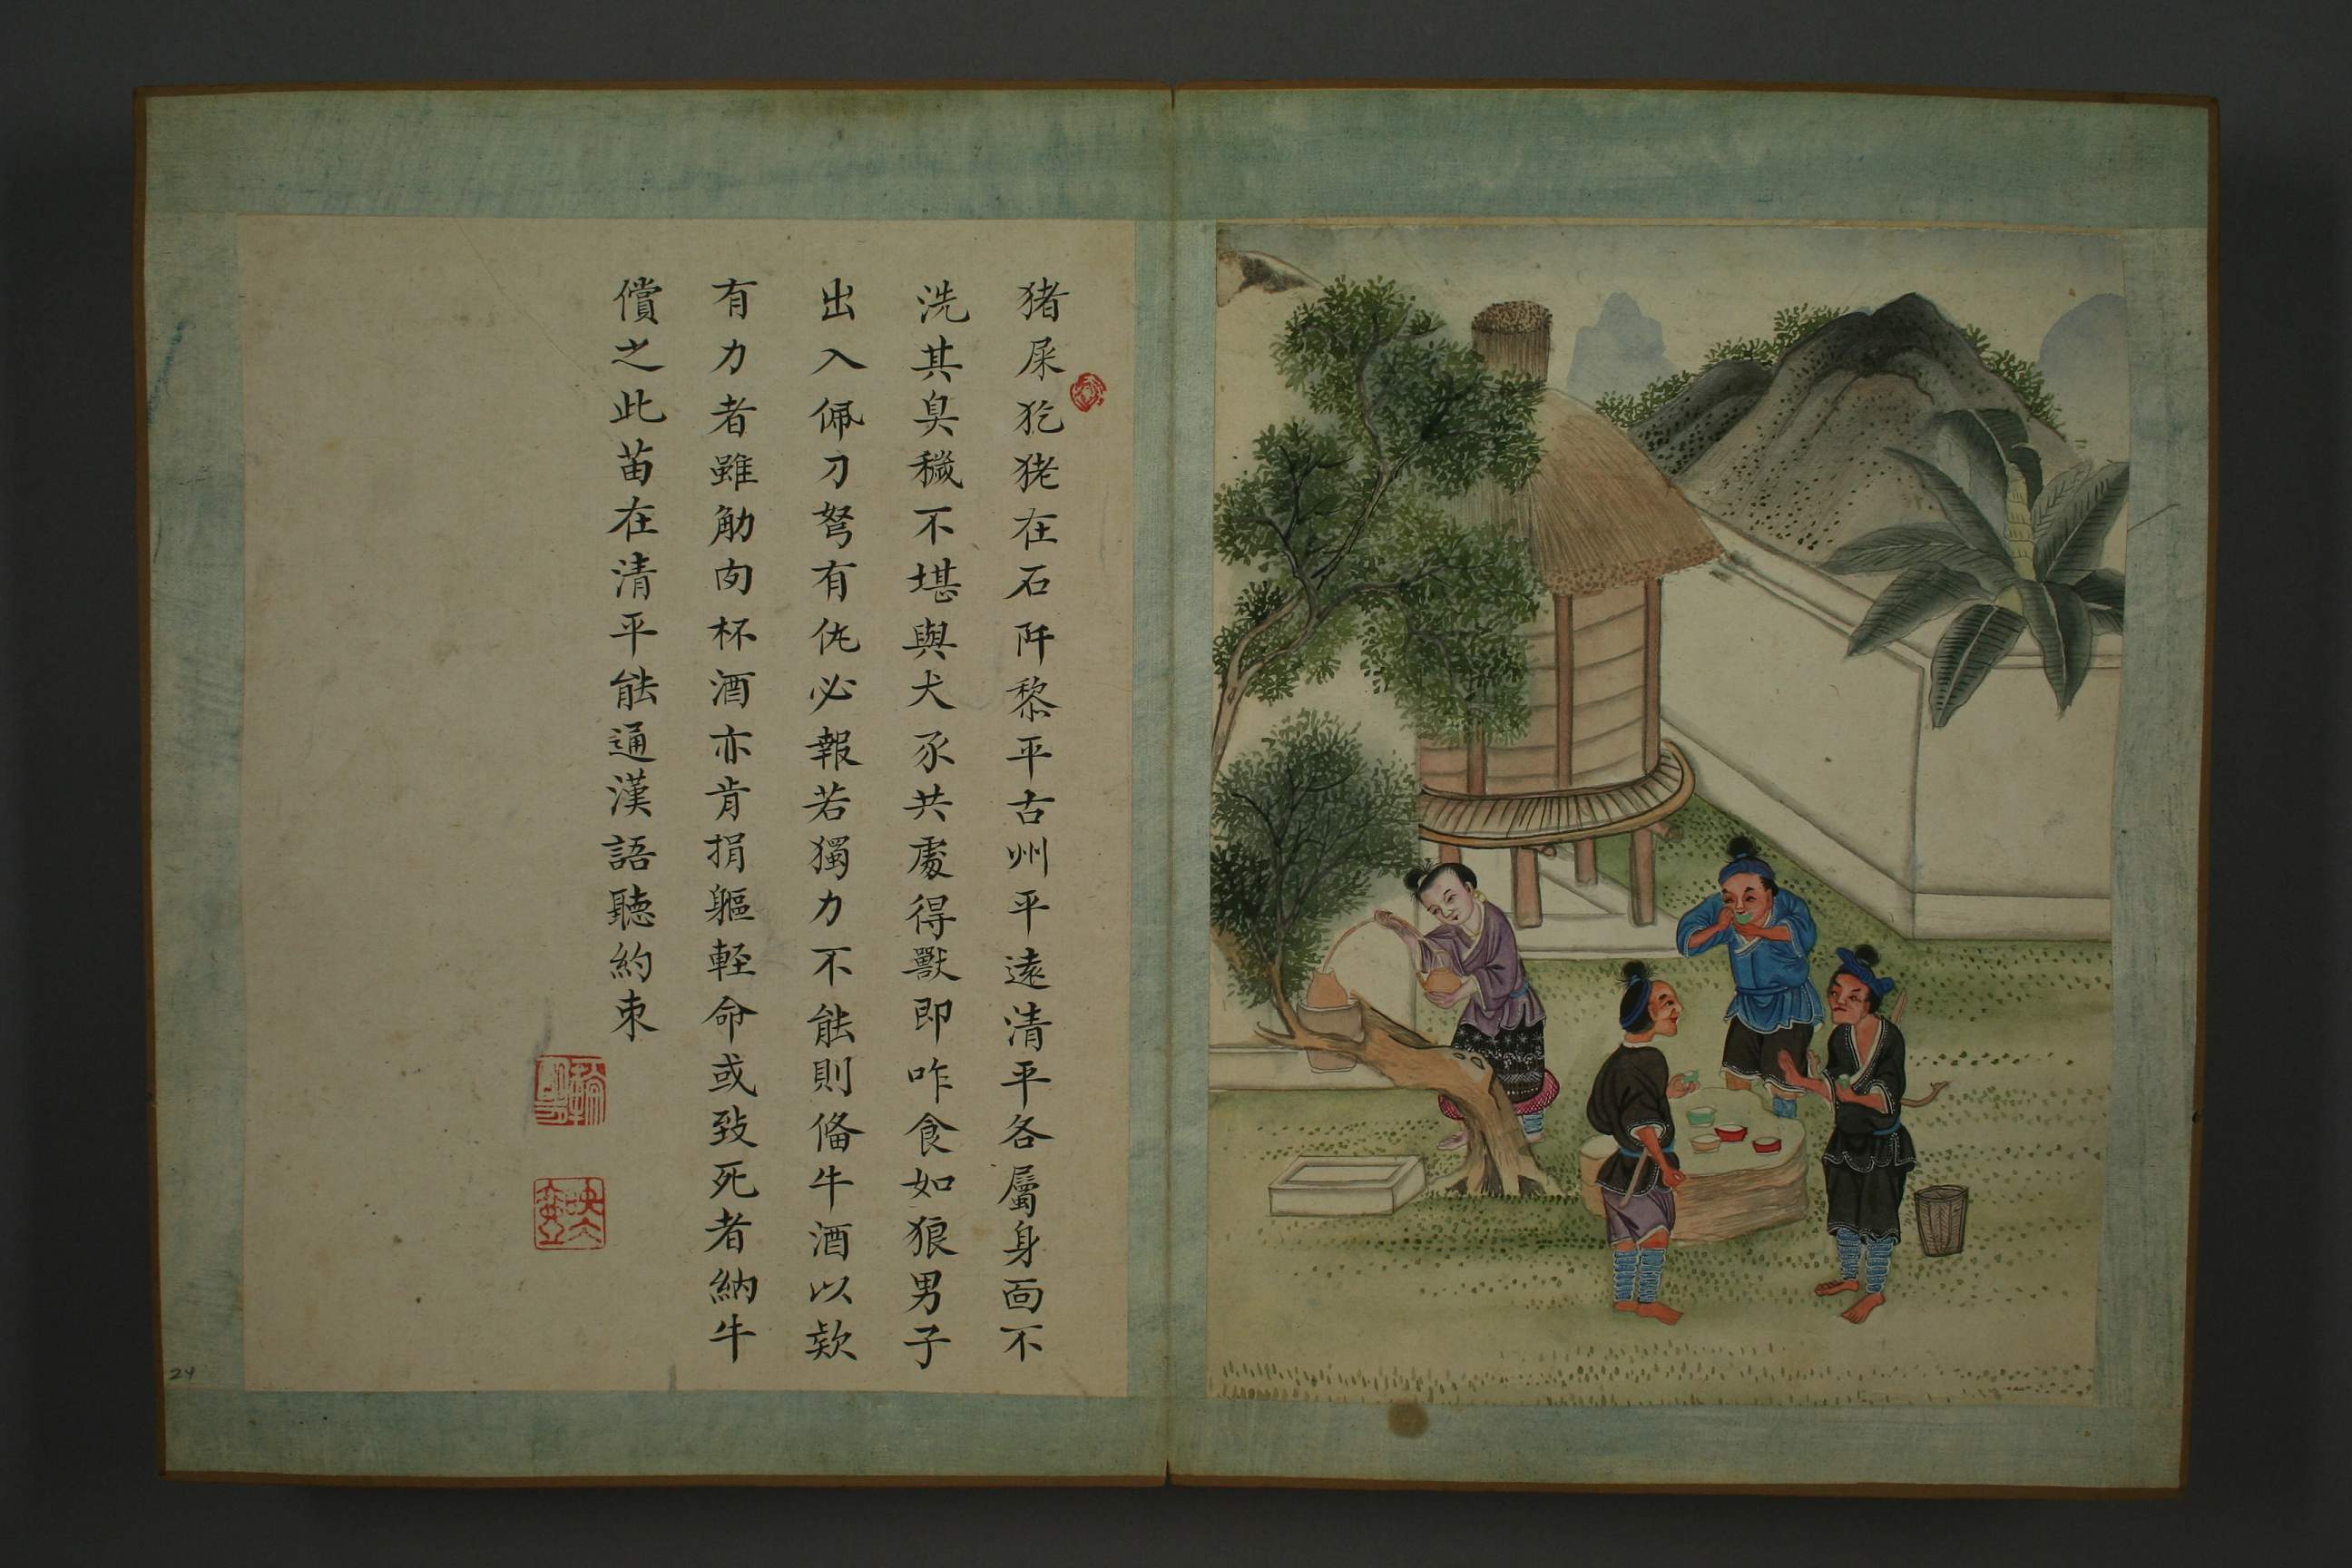 猪屎犵狫在石阡黎平古州平遠清平各屬身面不
洗其臭穢不堪與犬豕共處得獸即咋食如狼男子
出入佩刀弩有仇必報若獨力不能則俻牛酒以欵
有力者雖觔肉杯酒亦肯捐軀輕命或致死者納牛
償之此苗在清平能通漢語聽約束
24